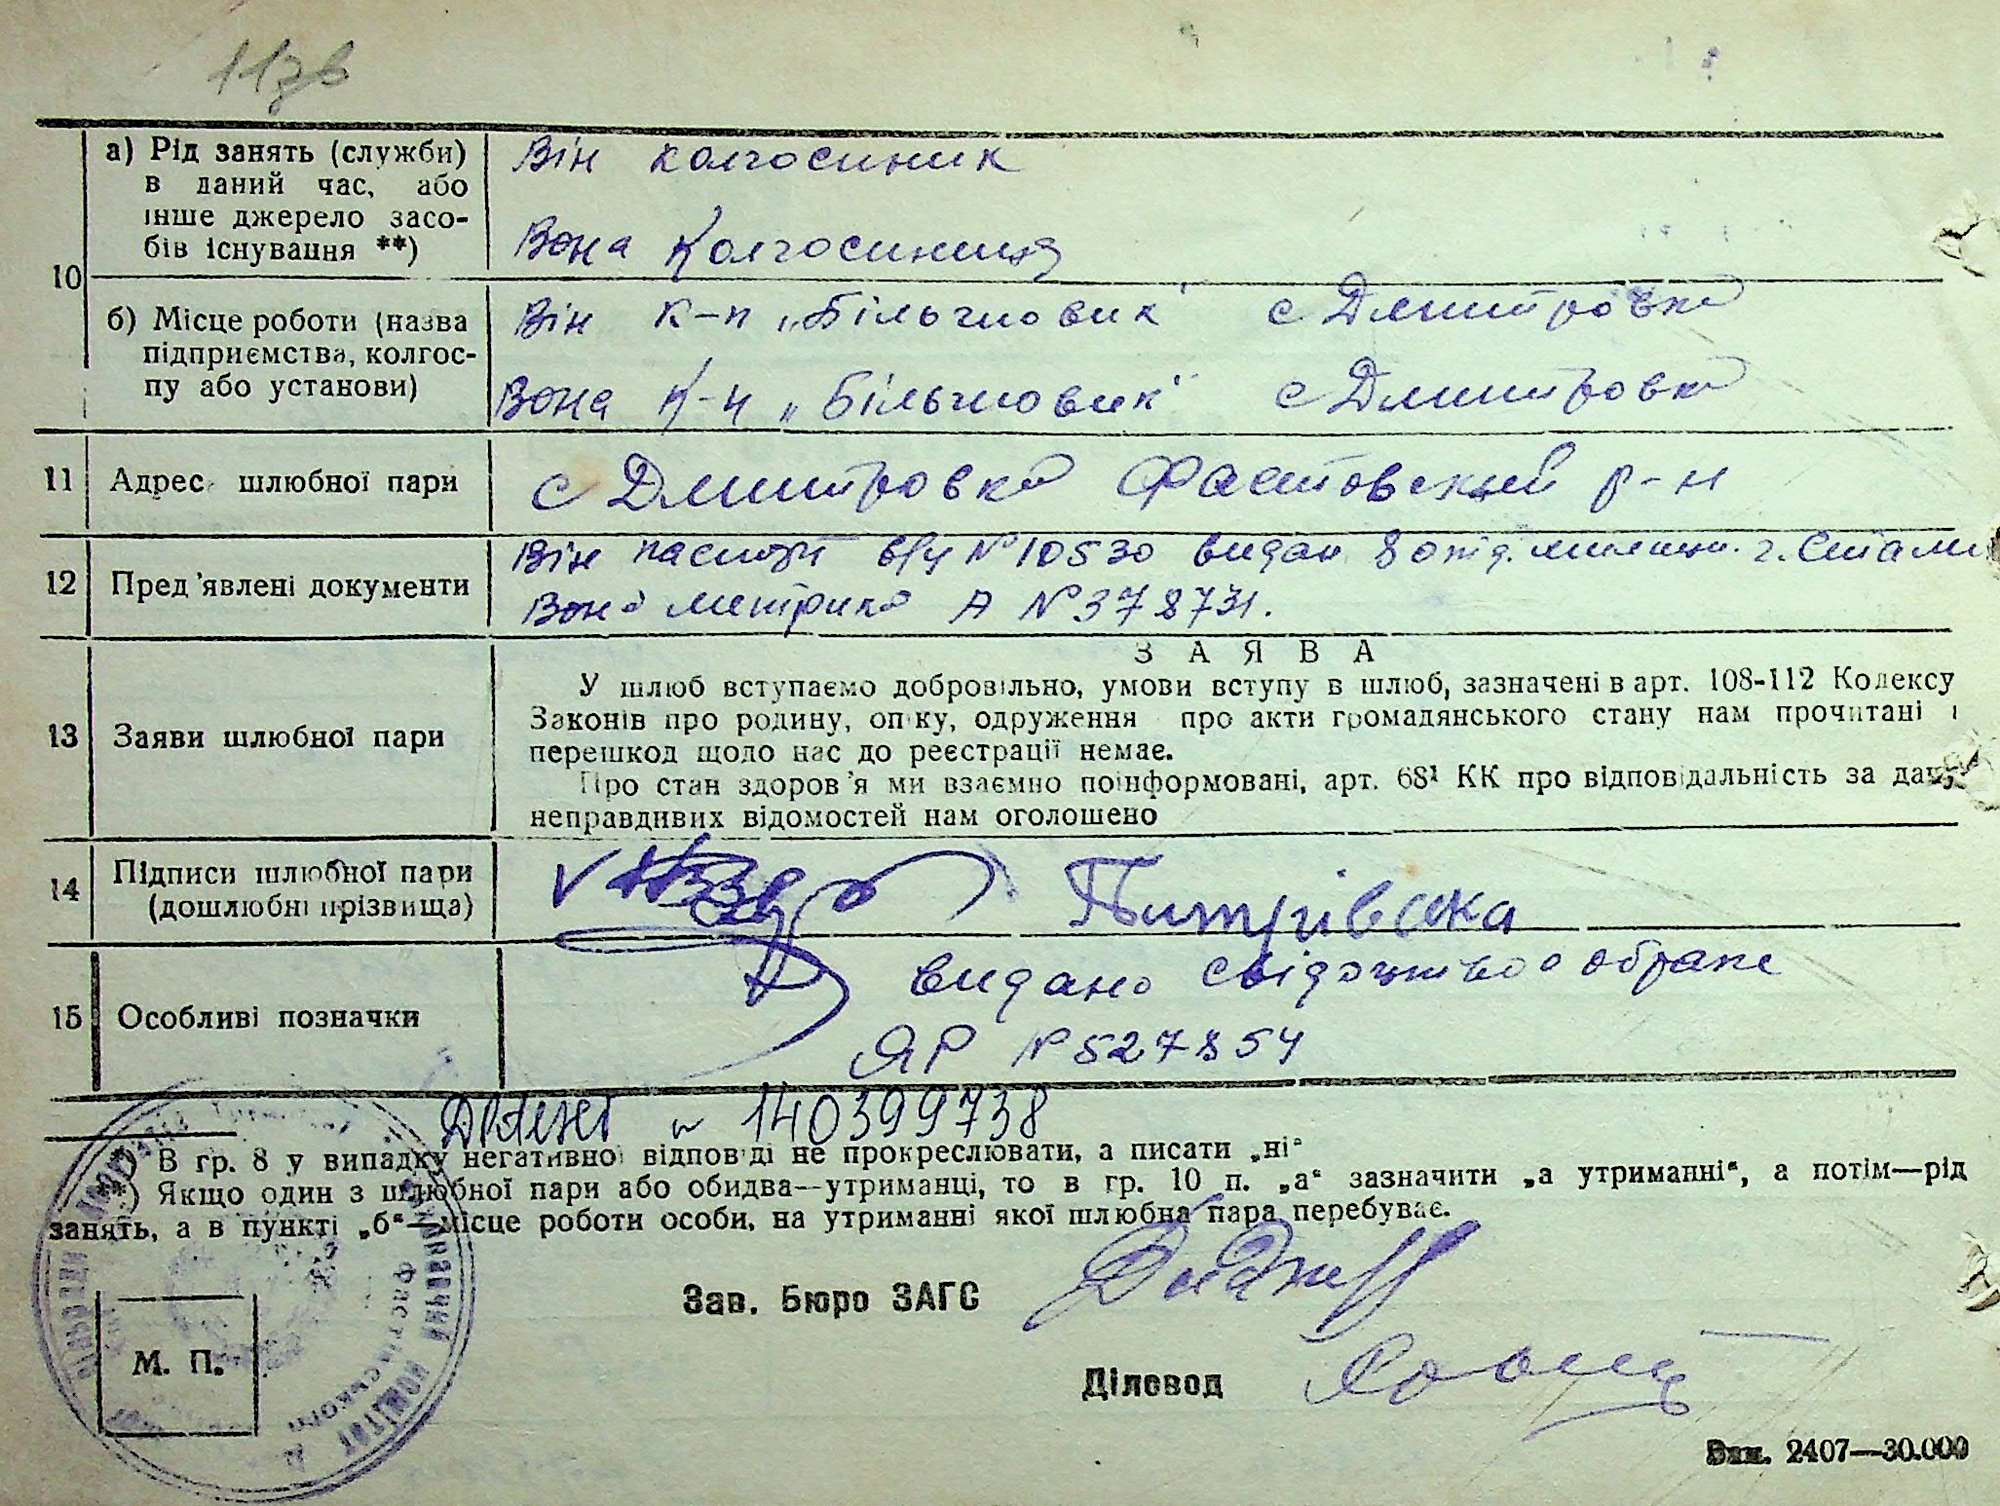 11зв
10
а) Рід занять (служби)
в даний час, або
інше джерело засо-
бів існування **)
Він колгоспник
Вона Колгоспниця
б) Місце роботи (назва
підприємства, колгос-
пу або установи)
Він к-п „Більшовик“ с Дмитровка
Вона К-п „Більшовик“ с Дмитровка
11 Адрес шлюбної пари
с Дмитровка Фастовский р-н
12 Пред'явлені документи
Він паспорт в/ч № 10530 видан 8 отд. милиции г. Стали
Вона метрика А № 378731.
13 Заяви шлюбної пари
ЗАЯВА
У шлюб вступаємо добровільно, умови вступу в шлюб, зазначені в арт. 108-112 Кодексу
Законів про родину, опіку, одруження про акти громадянського стану нам прочитані і
перешкод щодо нас до реєстрації немає.
Про стан здоров'я ми взаємно поінформовані, арт. 68¹ КК про відповідальність за дачу
неправдивих відомостей нам оголошено
14 Підписи шлюбної пари
(дошлюбні прізвища)
V Питрівська
15 Особливі позначки
видано свідоцтво о браке
ЯР № 527854
№ 140399738
*) В гр. 8 у випадку негативної відповіді не прокреслювати, а писати „ні“
**) Якщо один з шлюбної пари або обидва—утриманці, то в гр. 10 п. „а“ зазначити „а утриманні“, а потім—рід
занять, а в пункті „б“—місце роботи особи, на утриманні якої шлюбна пара перебуває.
Зав. Бюро ЗАГС
Діловод
М. П.
виконавчий комітет
Фастівського
Зам. 2407—30.000